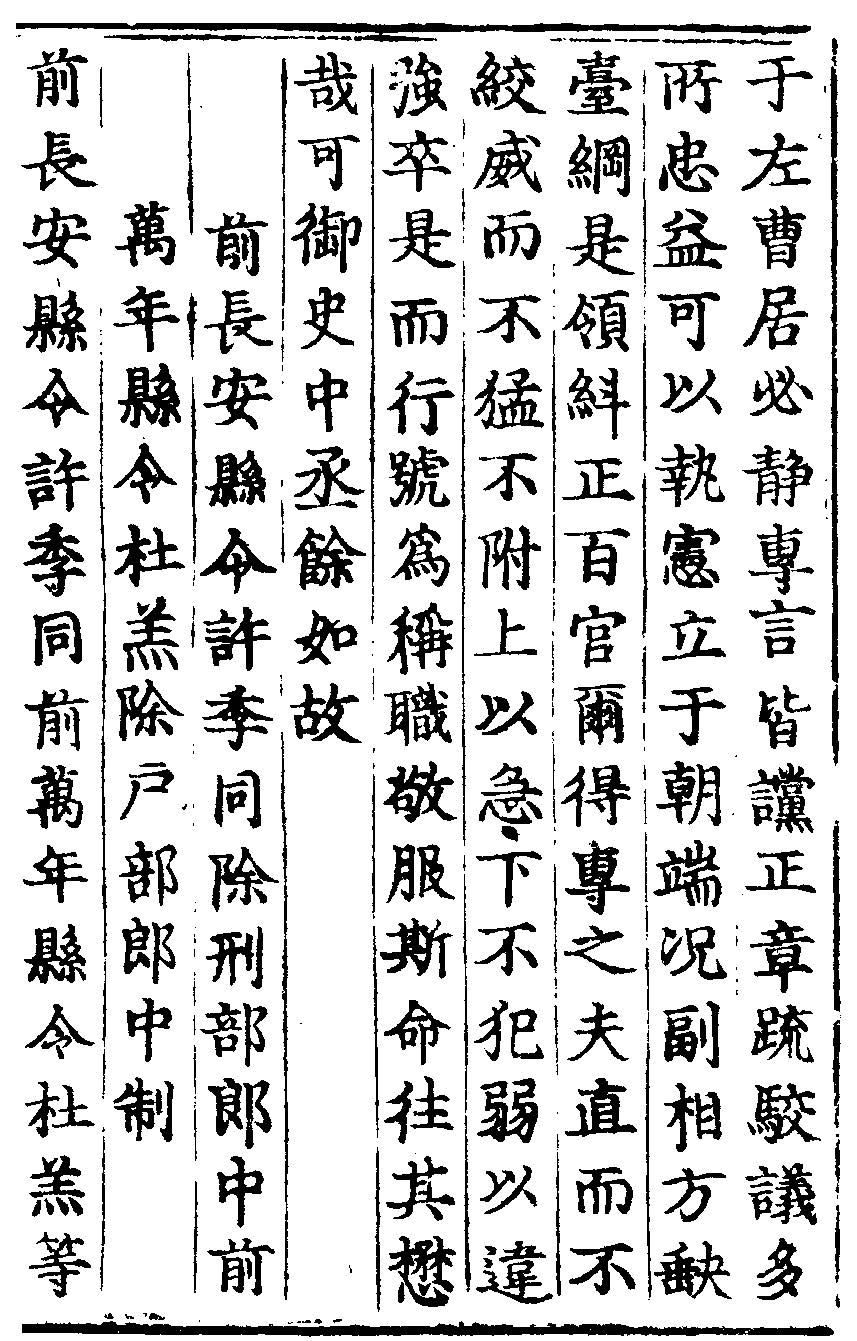 于左曹居必静專言皆讜正章疏駮議多
所忠益可以執憲立于朝端况副相方缺
臺綱是領糾正百官爾得專之夫直而不
絞威而不猛不附上以急下不犯弱以違
強卒是而行號為稱職敬服斯命往其懋
哉可御史中丞餘如故
前長安縣令許季同除刑部郎中前
萬年縣令杜羔除户部郎中制
前長安縣令許季同前萬年縣令杜羔等